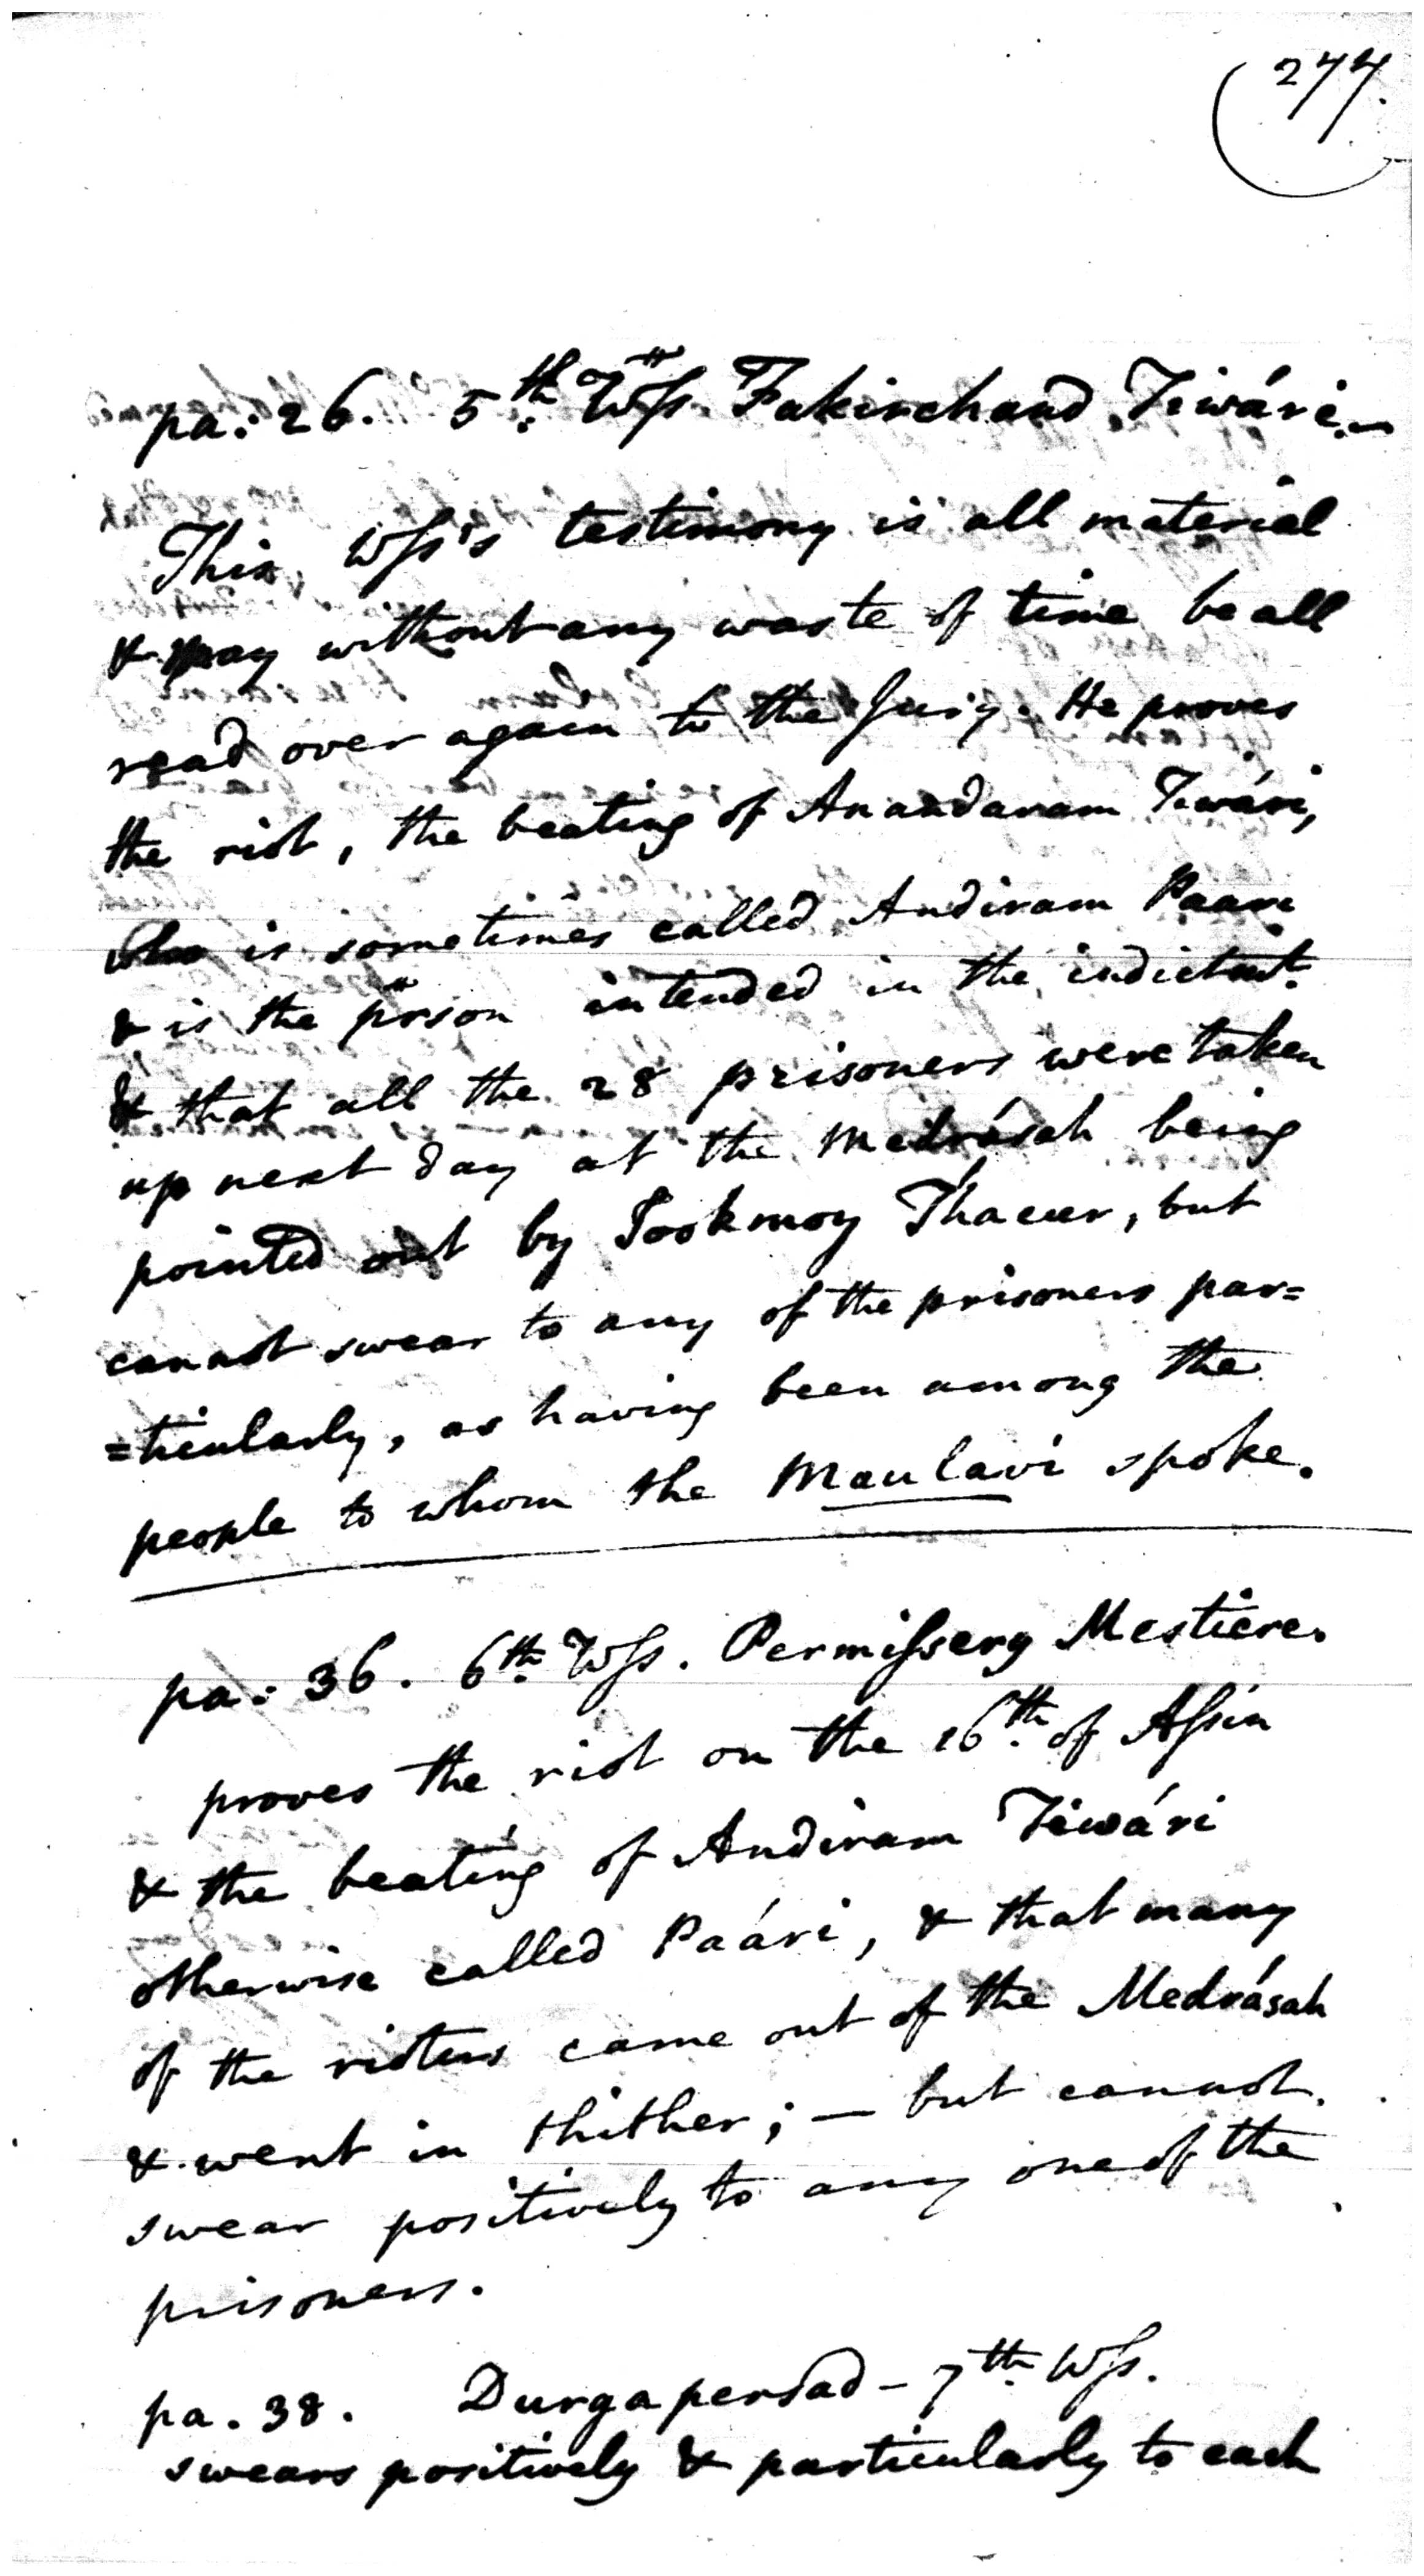 277.
pa: 26. 5th Wſs. Fakirchand Tiwári.—
This Wſs's testimony is all material
& may without any waste of time be all
read over again to the Jury. He proves
the riot, the beating of Anandaram Tiwári,
who is sometimes called Andiram Paari
& is the pson intended in the indictmt.
& that all the 28 prisoners were taken
up next day at the Medrásah being
pointed out by Sookmoy Thacur, but
cannot swear to any of the prisoners par=
=ticularly, as having been among the
people to whom the Maulavi spoke.
pa: 36. 6th Wſs. Permiſsery Mestiere.
proves the riot on the 16th of Aſsin
& the beating of Andiram Tiwári
otherwise called Paári, & that many
of the rioters came out of the Medrásah
& went in thither; — but cannot
swear positively to any one of the
prisoners.
pa. 38. Durgapersad — 7th Wſs.
swears positively & particularly to each